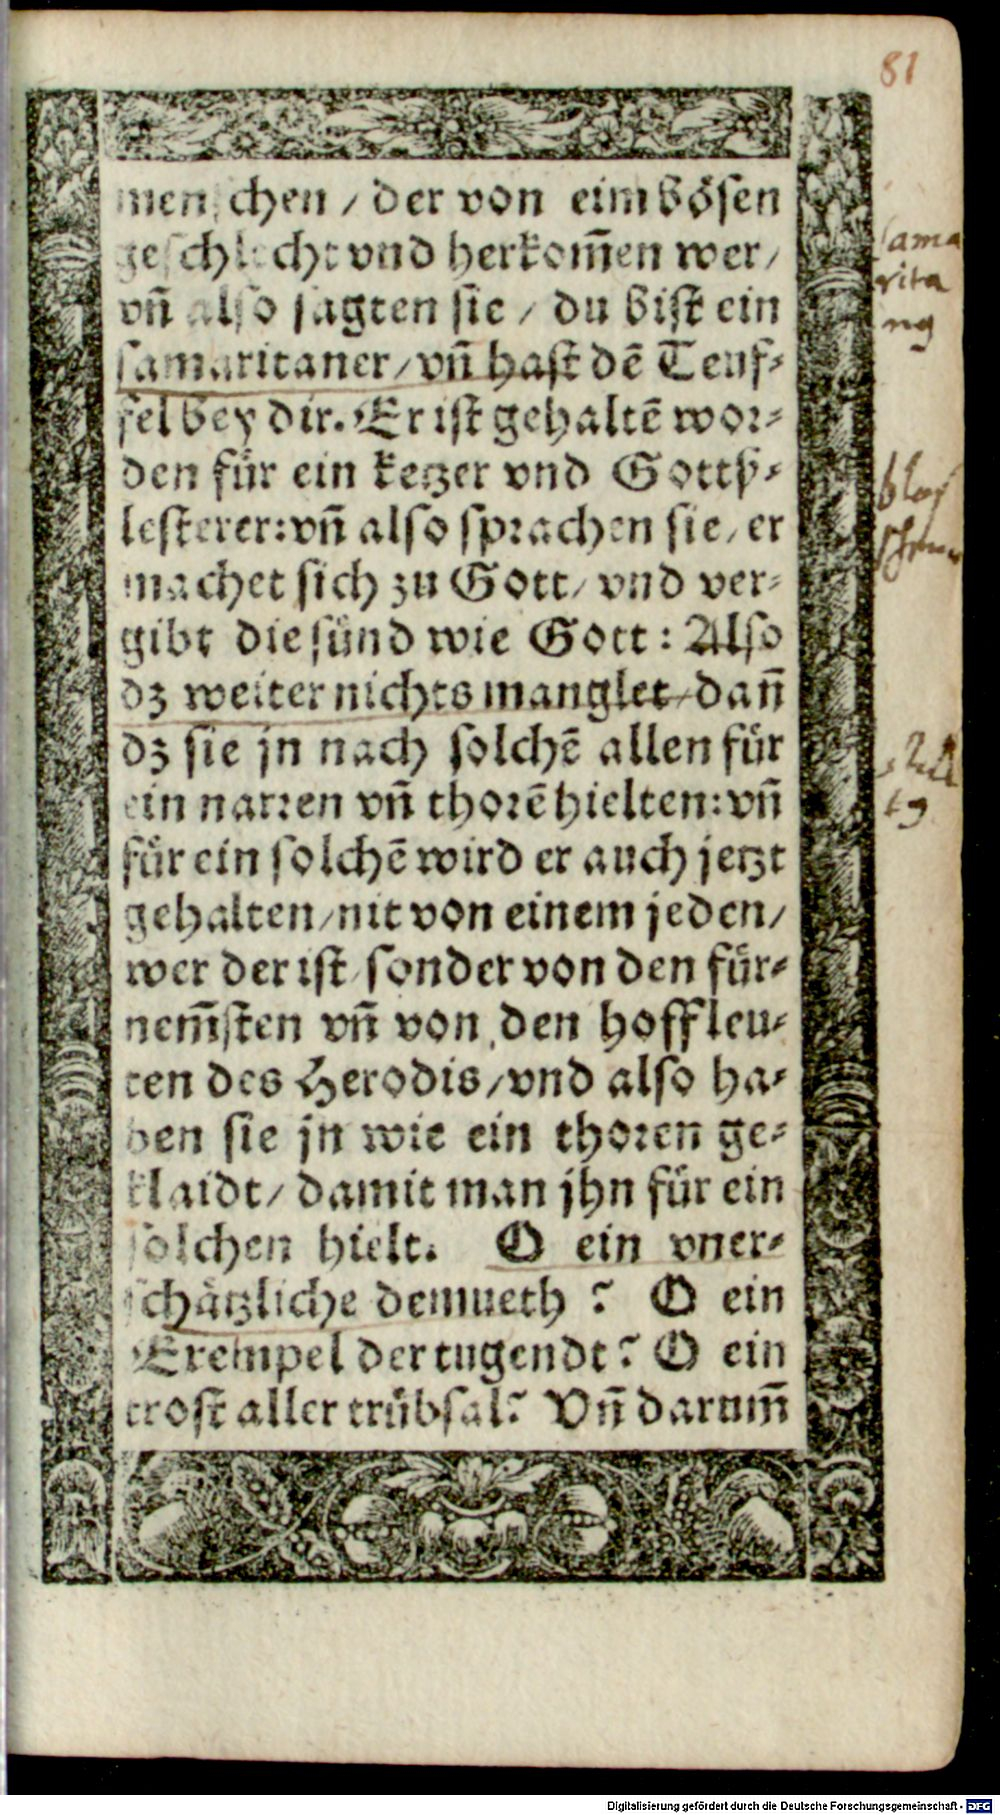 81
menschen / der von eim bösen
geschlecht vnd herkom̄en wer /
vn̄ also sagten sie / du bist ein
samaritaner / vn̄ hast dē Teuf⸗
fel bey dir. Er ist gehaltē wor⸗
den für ein ketzer vnd Gotts⸗
lesterer: vn̄ also sprachen sie / er
machet sich zu Gott / vnd ver⸗
gibt die sünd wie Gott: Also
dz weiter nichts manglet / dan̄
dz sie jn nach solchē allen für
ein narren vn̄ thorē hielten: vn̄
für ein solchē wird er auch jetzt
gehalten / nit von einem jeden /
wer der ist / sonder von den für⸗
nem̄sten vn̄ von den hoffleu⸗
ten des Herodis / vnd also ha⸗
ben sie jn wie ein thoren ge⸗
klaidt / damit man jhn für ein
solchen hielt. O ein vner⸗
schätzliche demueth ? O ein
Exempel der tugendt ? O ein
trost aller trübsal ? Vn̄ darum̄
sama
rita
ng
Digitalisierung gefördert durch die Deutsche Forschungsgemeinschaft - DFG